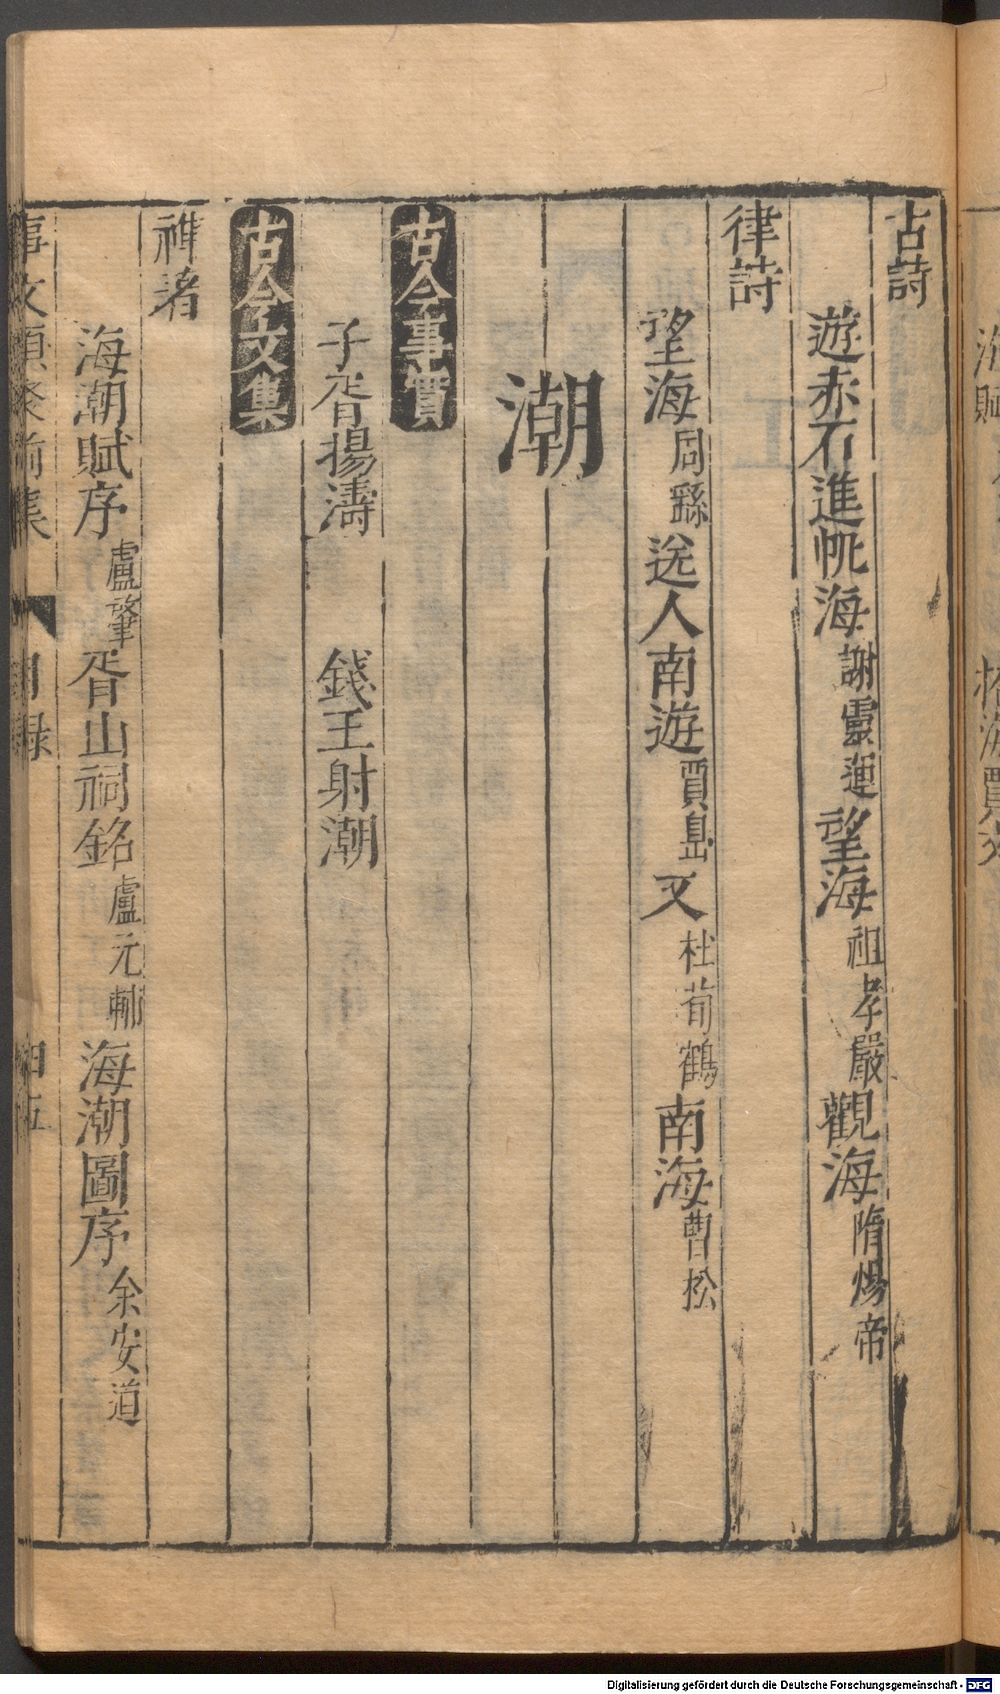 古詩
遊赤石進帆海 謝靈運 望海 祖孝嚴 觀海 隋煬帝
律詩
望海 周繇 送人南遊 賈島 又 杜荀鶴 南海 曹松
潮
古今事實
子胥揚濤 錢王射潮
古今文集
襍著
海潮賦序 盧肇 胥山祠銘 盧元輔 海潮圖序 余安道
事文類聚前集 目録
Digitalisierung gefördert durch die Deutsche Forschungsgemeinschaft - DFG